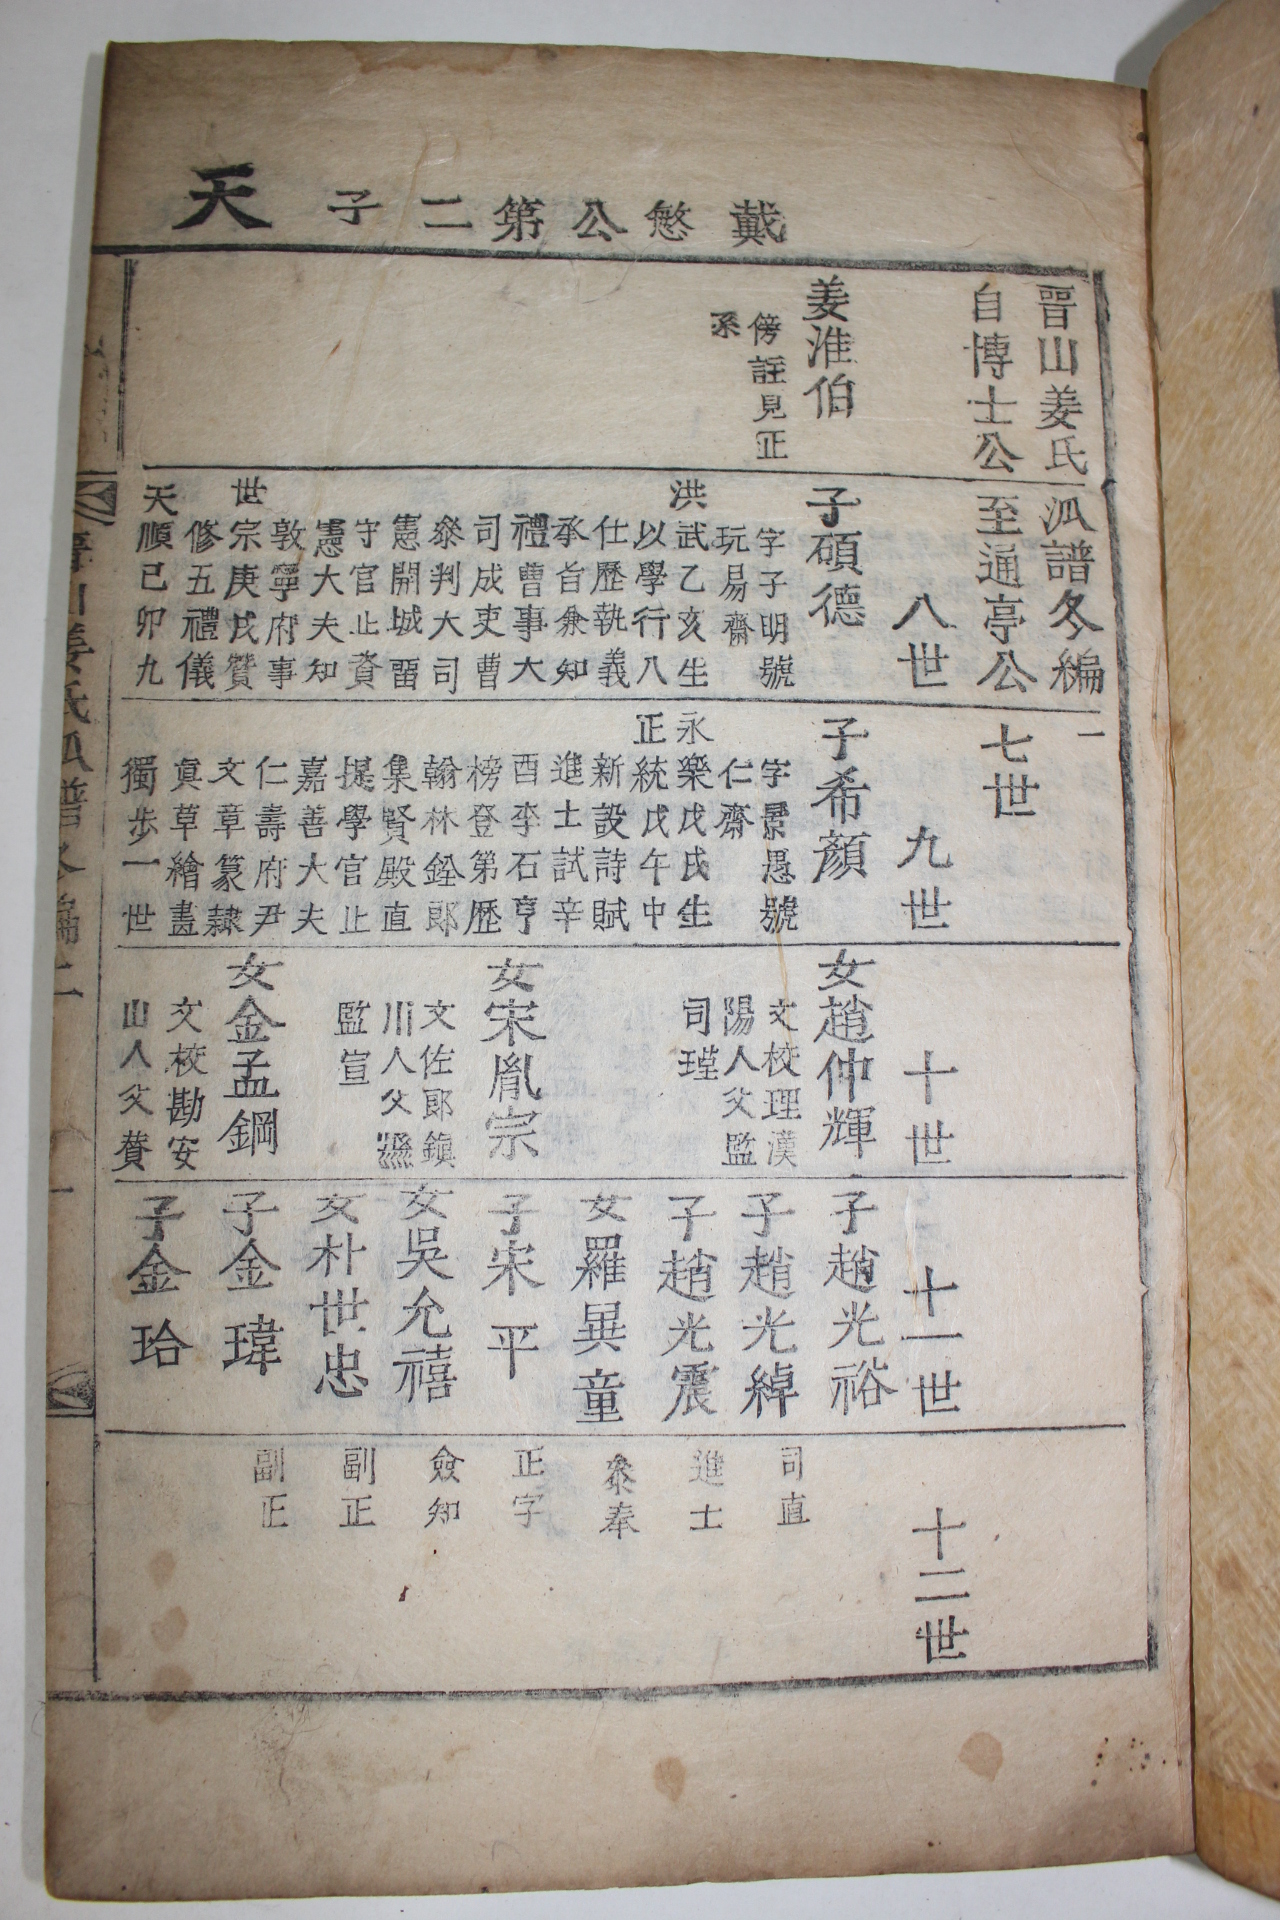 戴慜公第二子
天
晋山姜氏派譜冬編一
自博士公至通亭公七世
八世
九世
十世
十一世
十二世
姜淮伯
傍註見正
系
子碩德
字子明號
玩易齋
洪武乙亥生
以學行八
仕歷執義
承旨兼知
禮曹事大
司成吏曹
叅判大司
憲開城留
守官止資
憲大夫知
敦寧府事
世宗庚戌贊
修五禮儀
天順己卯九
子希顏
字景愚號
仁齋
永樂戊戌生
正統戊午中
新設詩賦
進士試辛
酉李石亨
榜登第歷
翰林銓郎
集賢殿直
提學官止
嘉善大夫
仁壽府尹
文章篆隷
真草繪畫
獨步一世
女趙仲輝
文校理漢
陽人父監
司瑆
女宋胤宗
文佐郎鎮
川人父縣
監宣
女金孟鋼
文校勘安
山人父贊
子趙光裕
司直
子趙光綽
進士
子趙光震
叅奉
女羅異童
子宋平
正字
女吳允禧
僉知
女朴世忠
副正
子金瑋
副正
子金珆
晋山姜氏派譜冬編二
一